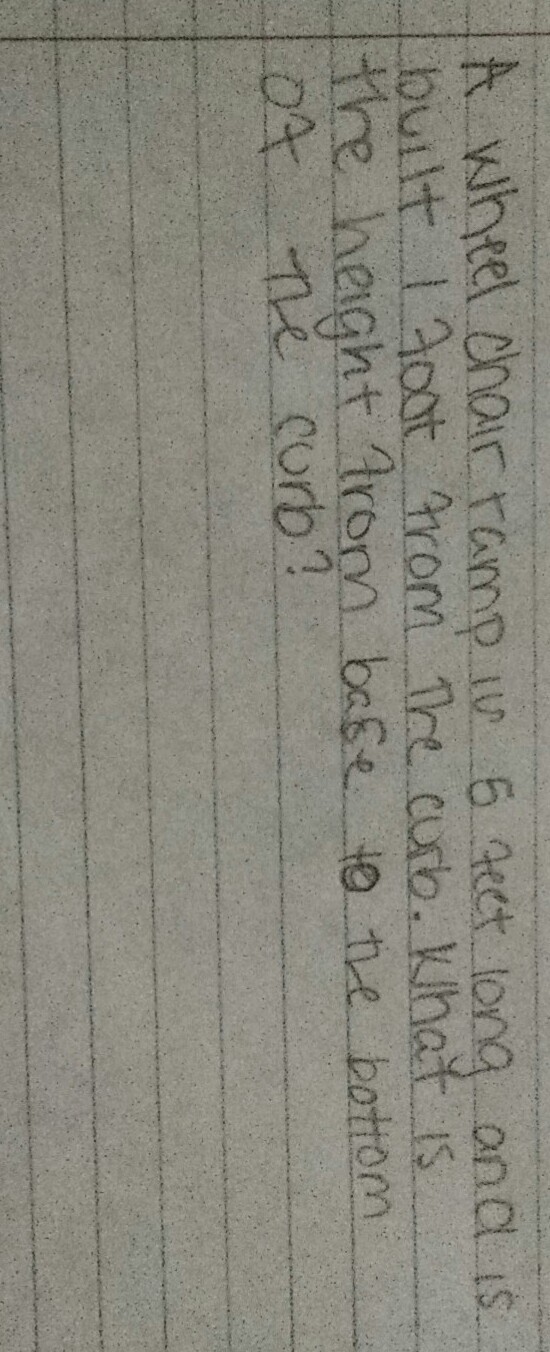 A wheel chair ramp is 5 feet long and is
built 1 foot from the curb. What is
the height from base to the bottom
of the curb?